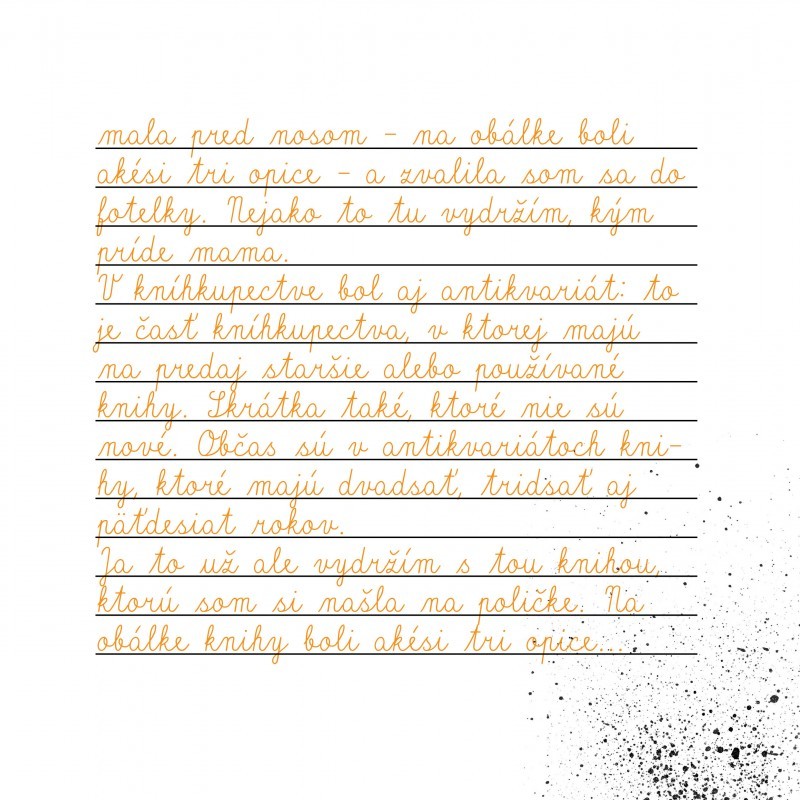 mala pred nosom - na obálke boli
akési tri opice - a zvalila som sa do
fotelky. Nejako to tu vydržím, kým
príde mama.
V kníhkupectve bol aj antikvariát: to
je časť kníhkupectva, v ktorej majú
na predaj staršie alebo používané
knihy. Skrátka také, ktoré nie sú
nové. Občas sú v antikvariátoch kni-
hy, ktoré majú dvadsať, tridsať aj
päťdesiat rokov.
Ja to už ale vydržím s tou knihou,
ktorú som si našla na poličke. Na
obálke knihy boli akési tri opice...